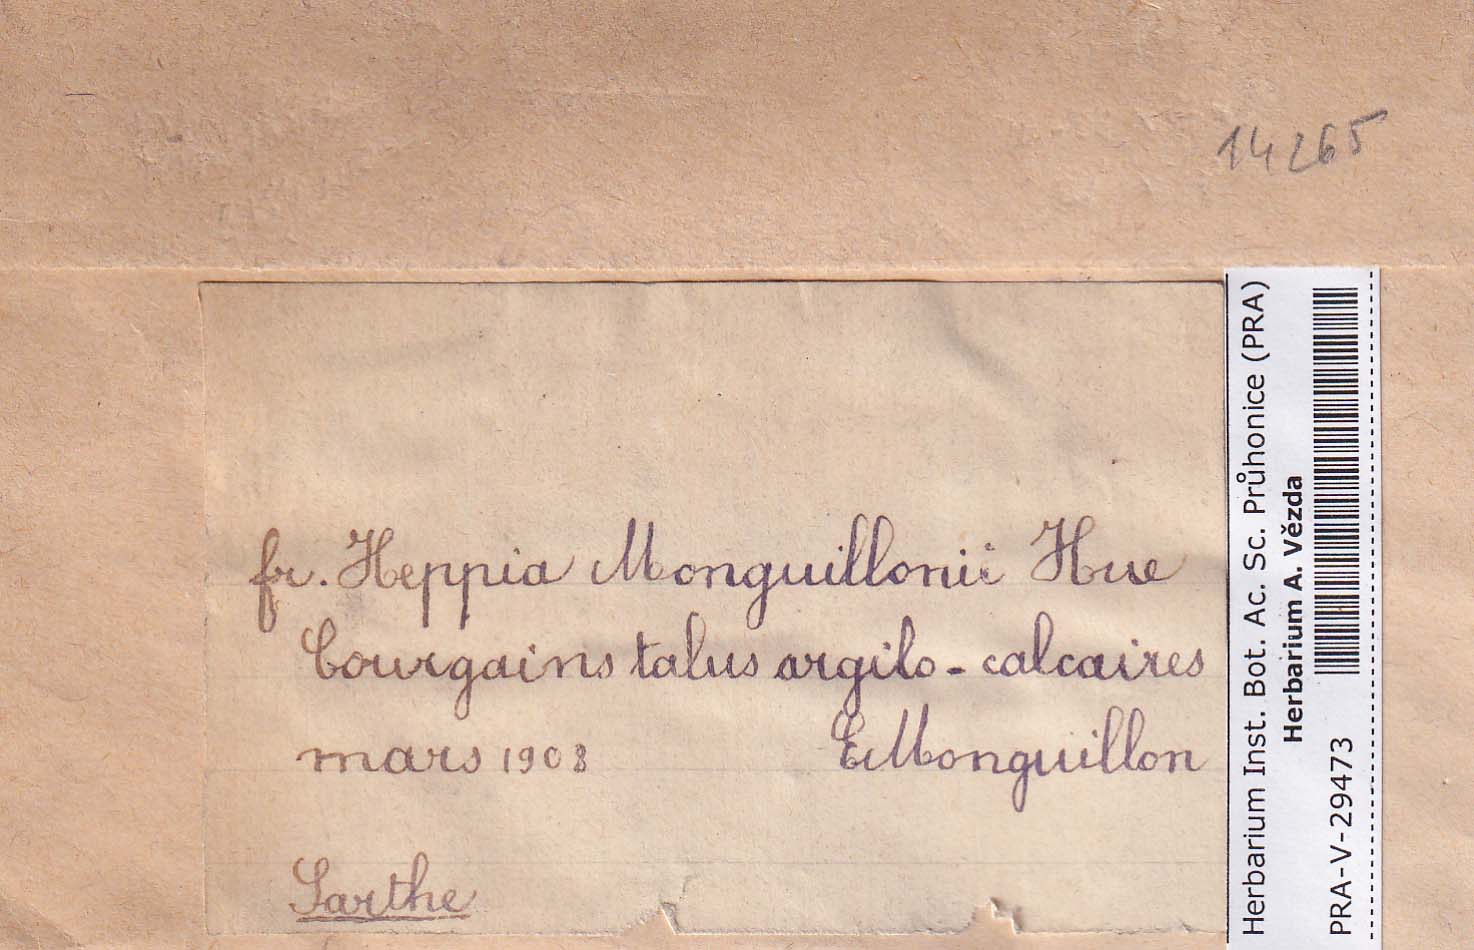 14265
fr. Heppia Monguillonii Hue
Courgains talus argilo-calcaires
mars 1908 E Monguillon
Sarthe
Herbarium Inst. Bot. Ac. Sc. Průhonice (PRA)
Herbarium A. Vězda
PRA-V-29473